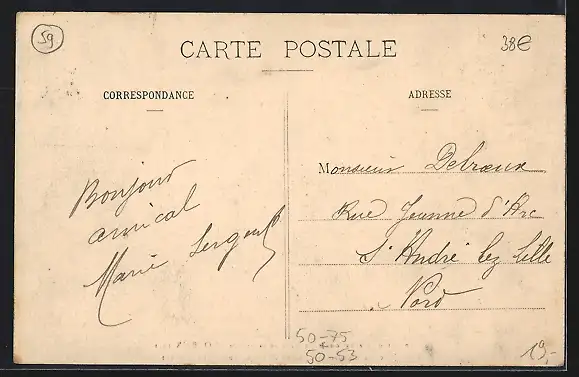 59
38€
CARTE POSTALE
CORRESPONDANCE
ADRESSE
Bonjour
amical
Marie Sergent
Monsieur Debroeux
Rue Jeanne d'Arc
St André lez Lille
Nord
50-75
50-53
19,-